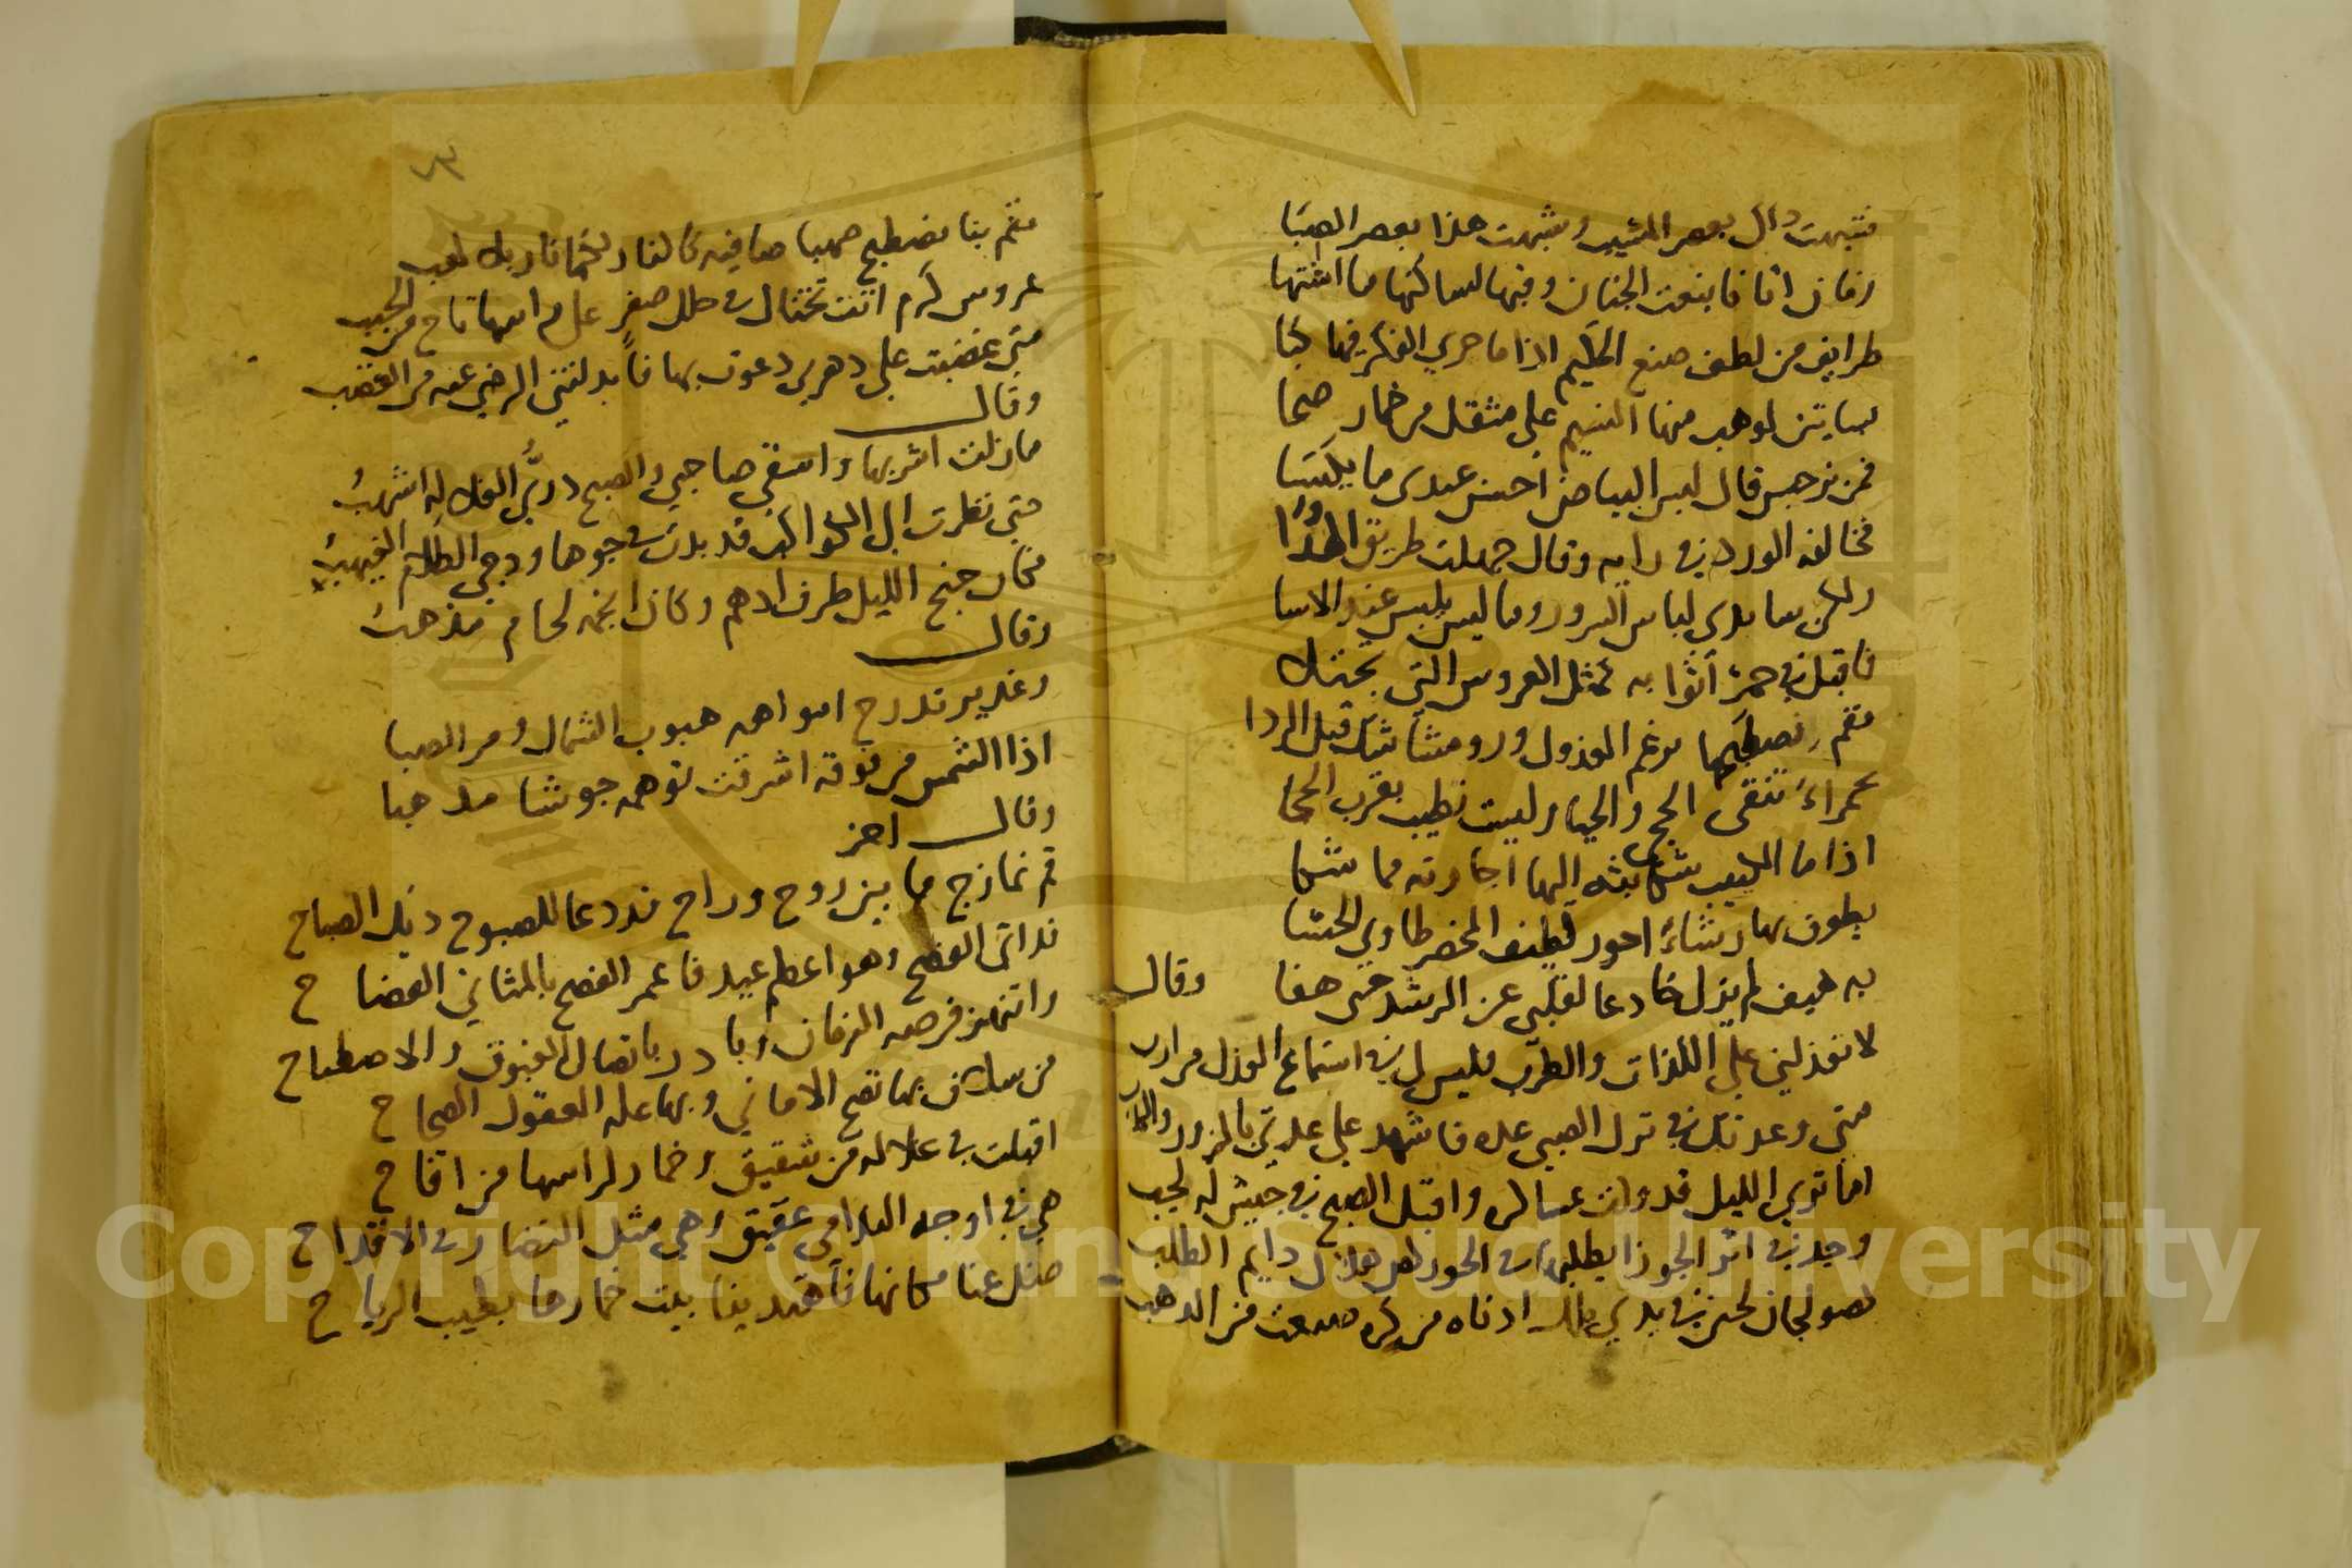 فشبهت ذاك بعصر المشيب وشبهت هذا بعصر الصبا
زمان اتانا بنعت الجنان وفيها لساكنها ما اشتها
طرايف من لطف صنع الحكيم اذا ما جرى الفكر فيها كبا
بساتين لو هب منها النسيم على مثقل من خمار صحا
فمن نرجس قال لبس البياض احسن عندى ما يكتسا
فخالفه الورد في رايه وقال جهلت طريق
ولكن سابدي لباس السرور وما ليس يلبس عند الاسا
فاقبل في حمر اثوابه كمثل العروس التي تجتلا
فقم نصطبحها برغم العذول ورو مشاشك قبل الردا
بحمراء تنفى الحجى والحيا وليست تطيب بقرب الحجا
اذا ما الكئيب شكا بثه اليها اجارته مما شكا
يطوف بها رشاء احور لطيف المخصر طاوي الحشا
به هيف لم يزل خادعا لقلبي عن الرشد حتى هفا وقال
لا تعذليني على اللذات والطرب فليس لي في استماع العذل من ارب
متى وعدتك في ترك الصبى عدة فاشهد على عدتي بالزور والكذب
اما ترى الليل قد ولت عساكره واقبل الصبح في جيش له لجب
وجد في اثر الجوزا يطلبها في الجو ركض هلال دايم الطلب
كصولجان لجين في يدي ملك ادناه من كرة صيغت من الذهب
٧٣
فقم بنا نصطبح صهبا صافيه كالنار لكنها نار بلا لهب
عروس كرم اتت تختال في حلل صفر على راسها تاج من الحبب
متى غضبت على دهري دعوت بها فابدلتني الرضى عنه من الغضب
وقال
ما زلت اشربها واسقي صاحبي والصبح دري الغلاله اشهب
حتى نظرت الى الكواكب قد بدت في جوها ودجى الظلام الغيهب
فكان جنح الليل طرف ادهم وكان انجمه لجام مذهب
وقال
وغدير تدرج امواهه هبوب الشمال ومر الصبا
اذا الشمس من فوقه اشرقت توهمه جوشنا مذهبا
وقال اخر
قم نمازج ما بين روح وراح قد دعا للصبوح ديك الصباح
قد اتى الفصح وهو اعظم عيد فاعمر الفصح بالمثاني الفصاح
وانتهز فرصه الزمان وبادر باتصال الغبوق والاصطباح
من سلاف بها تصح الاماني وبها عله العقول الصحاح
اقبلت في غلاله من شقيق وخمار لراسها من اقاح
هي في اوجه الندامى عقيق وهي مثل النضار في الاقداح
ضل عنا مكانها فاهتدينا بيت خمارها بطيب الرياح